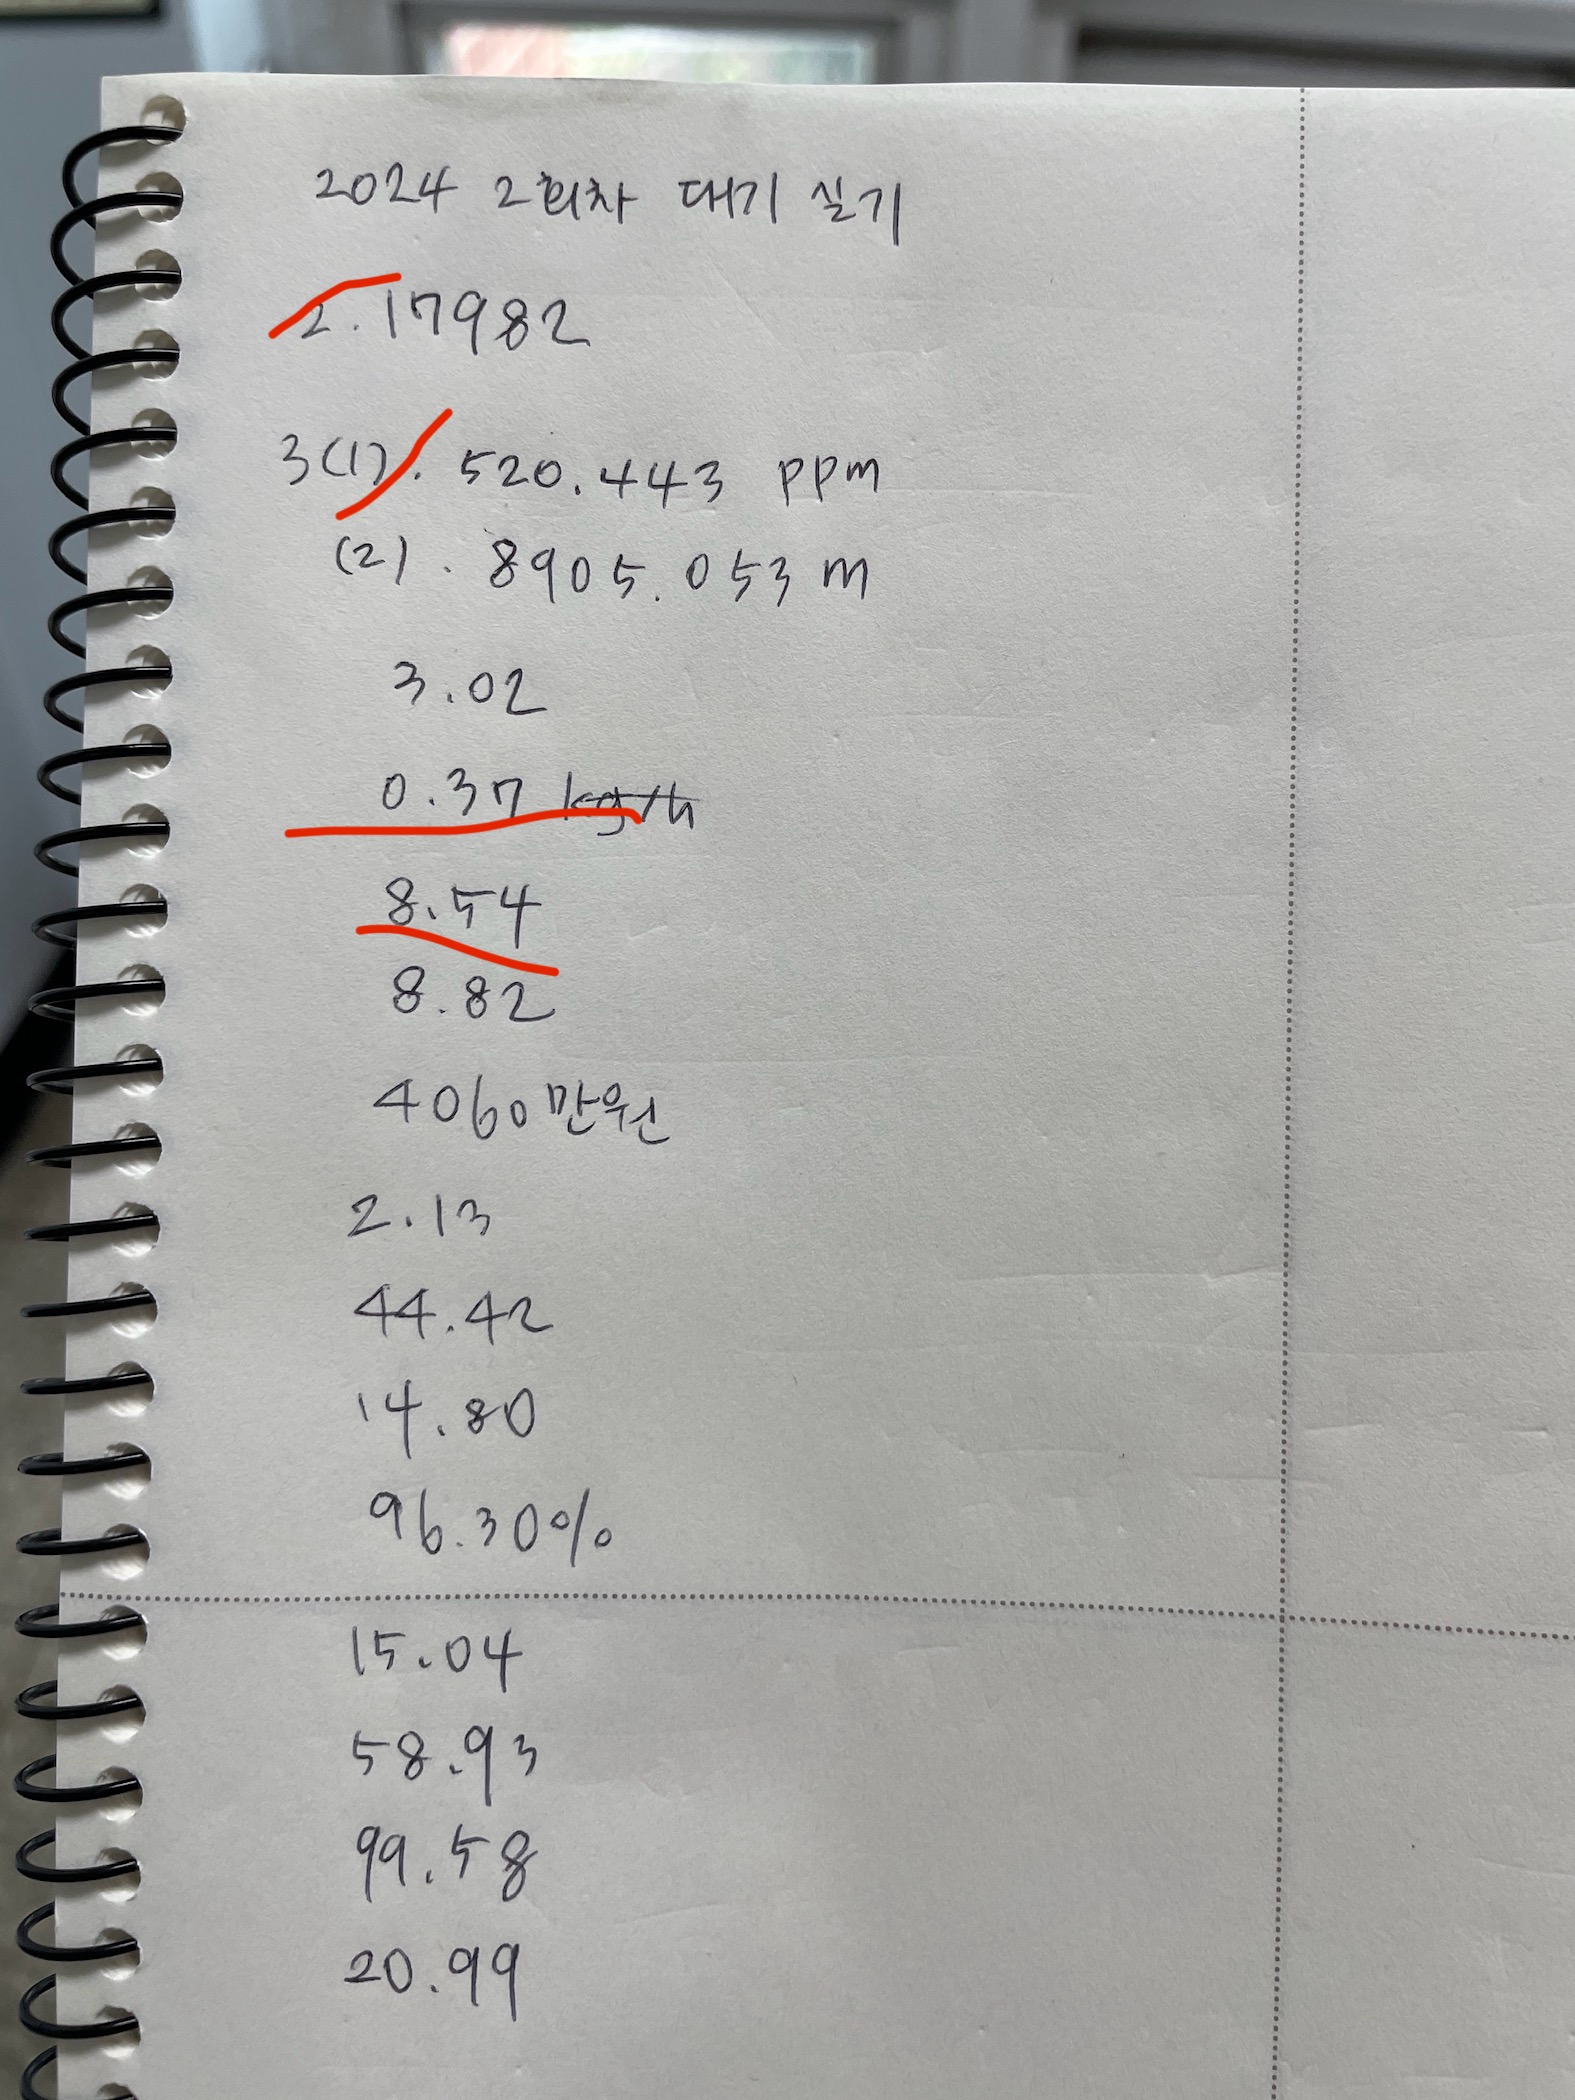 2024 2회차 대기 실기
2.17982
3(1). 520.443 ppm
(2). 8905.053 m
3.02
0.37 kg/h
8.54
8.82
4060만원
2.13
44.42
14.80
96.30%
15.04
58.93
99.58
20.99